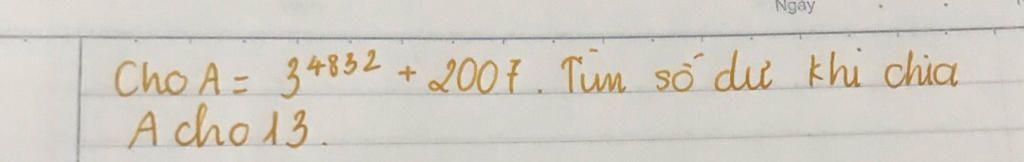 Ngày
Cho A = 3⁴⁸³² + 2007. Tìm số dư khi chia
A cho 13.